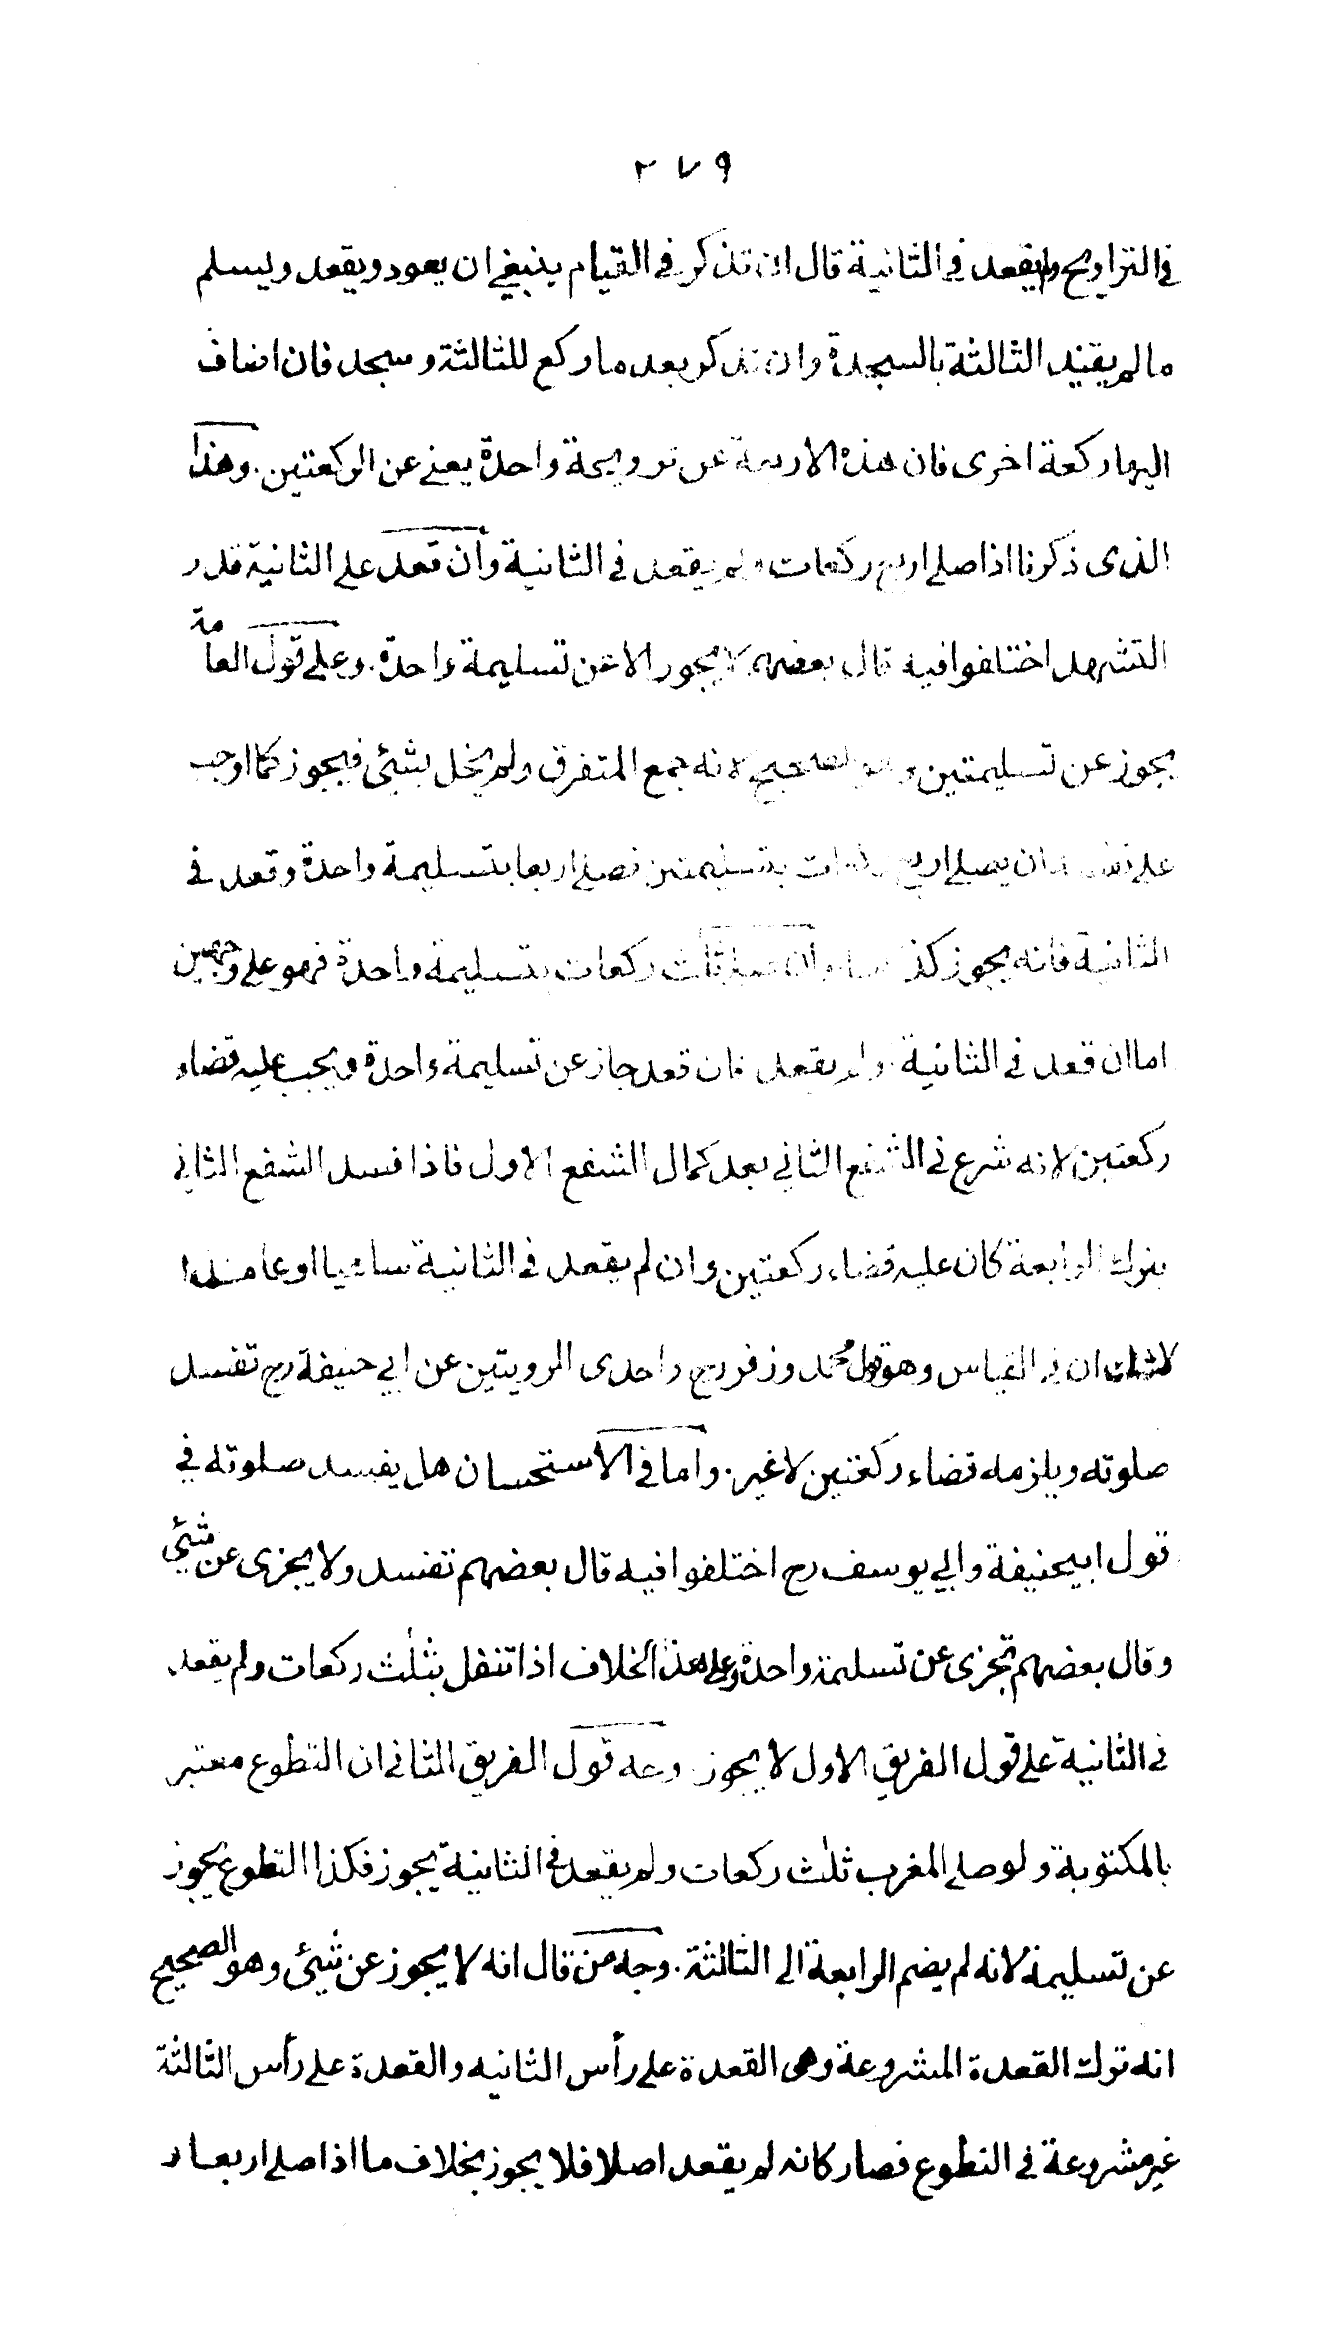 ٢٧٩
في التراويح ولم يقعد في الثانية قال ان تذكر في القيام ينبغي ان يعود ويقعد ويسلم
ما لم يقيد الثالثة بالسجدة وان تذكر بعد ما ركع للثالثة وسجد فان اضاف
اليها ركعة اخرى فان هذه الاربعة عن ترويحة واحدة يعني عن الركعتين. وهذا
الذى ذكرنا اذا صلى اربع ركعات ولم يقعد في الثانية وان قعد على الثانية قدر
التشهد اختلفوا فيه قال بعضهم لا يجوز الا عن تسليمة واحدة. وعلى قول العامة
يجوز عن تسليمتين وهو الصحيح لانه جمع المتفرق ولم يخل بشئ فيجوز كما اوجب
على نفسه ان يصلى اربع ركعات بتسليمتين فصلى اربعا بتسليمة واحدة وقعد في
الثانية فانه يجوز كذا وان صلى ثلث ركعات بتسليمة واحدة فهو على وجهين
اما ان قعد في الثانية او لم يقعد فان قعد جاز عن تسليمة واحدة ويجب عليه قضاء
ركعتين لانه شرع في الشفع الثاني بعد كمال الشفع الاول فاذا فسد الشفع الثاني
بترك الرابعة كان عليه قضاء ركعتين وان لم يقعد في الثانية ساهيا او عامدا
لا شك ان في القياس وهو قول محمد وزفر رح واحدى الرويتين عن ابي حنيفة رح تفسد
صلوته ويلزمه قضاء ركعتين لا غير. واما في الاستحسان هل يفسد صلوته في
قول ابيحنيفة وابي يوسف رح اختلفوا فيه قال بعضهم تفسد ولا يجزى عن شئي
وقال بعضهم تجزى عن تسليمة واحدة وعلى هذا الخلاف اذا تنفل بثلث ركعات ولم يقعد
في الثانية على قول الفريق الاول لا يجوز. وجه قول الفريق الثاني ان التطوع معتبر
بالمكتوبة ولو صلى المغرب ثلث ركعات ولم يقعد في الثانية يجوز فكذا التطوع يجوز
عن تسليمة لانه لم يضم الرابعة الى الثالثة. وجه من قال انه لا يجوز عن شيئ وهو الصحيح
انه ترك القعدة المشروعة وهى القعدة على رأس الثانيه والقعدة على رأس الثالثة
غير مشروعة في التطوع فصار كانه لم يقعد اصلا فلا يجوز بخلاف ما اذا صلى اربعا و